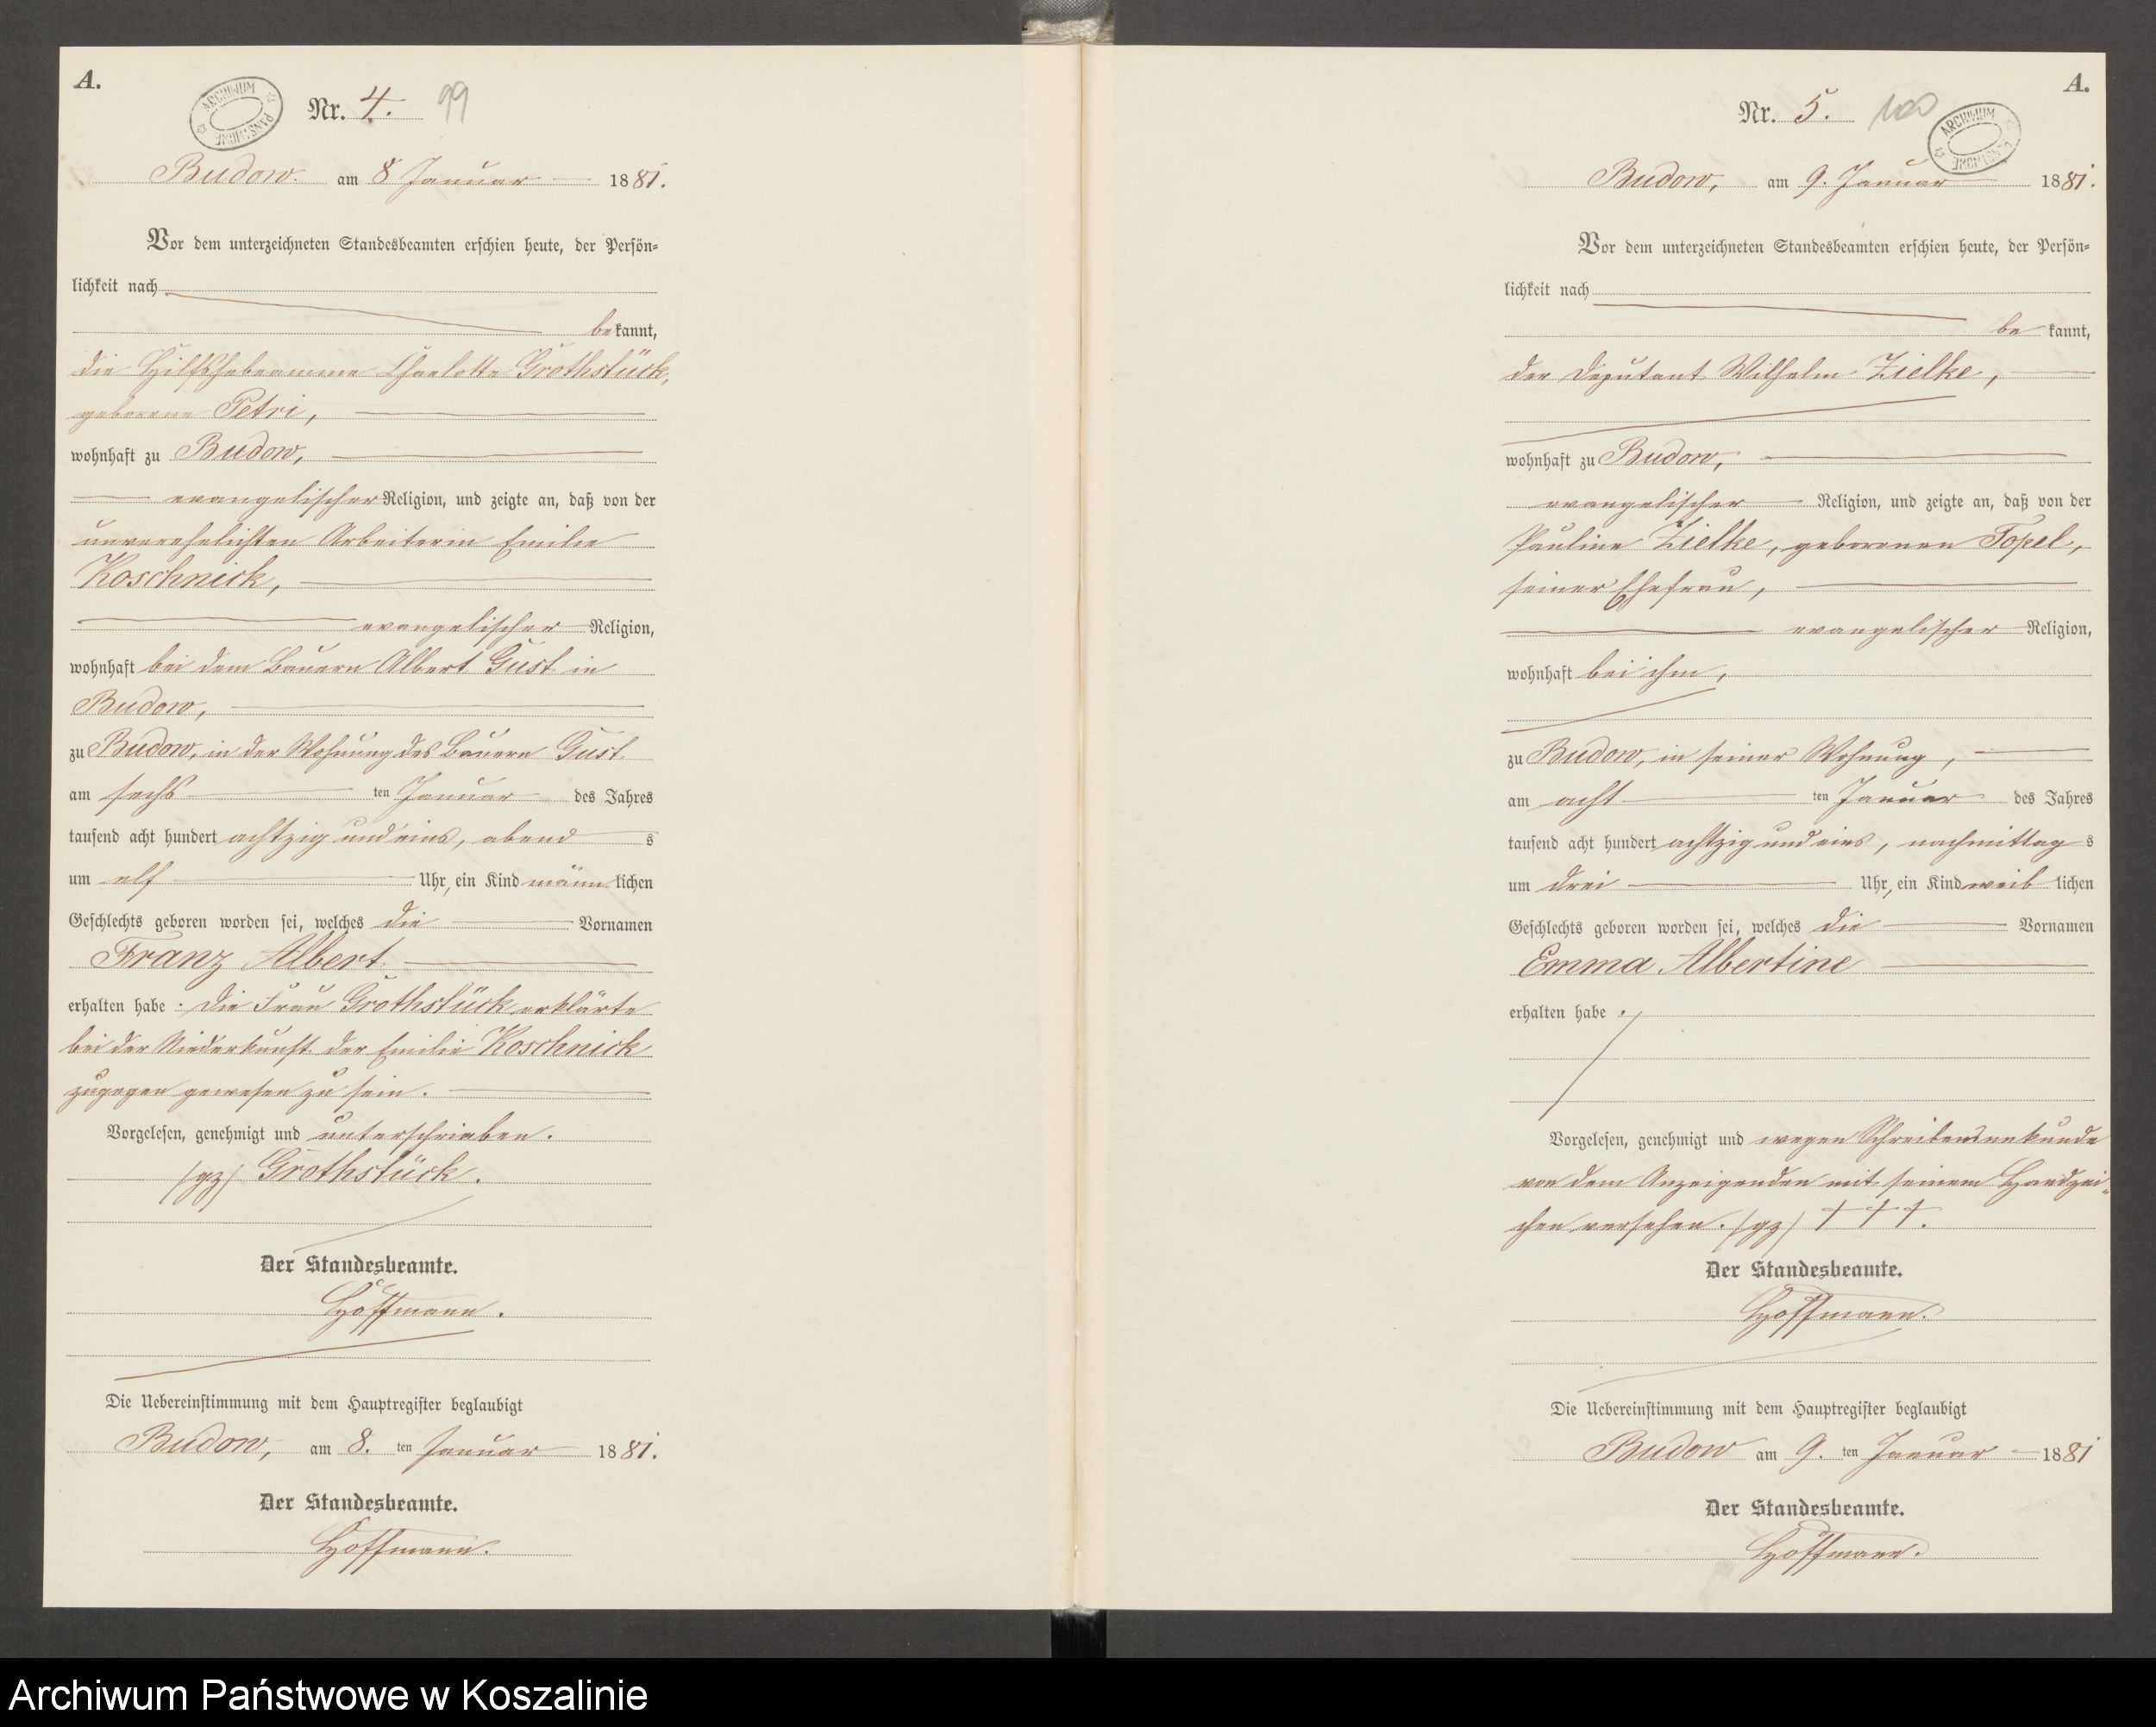 A.
ARCHIWUM PAŃSTWOWE
Nr. 4. 99
Budow. am 8 Januar 1881.
Vor dem unterzeichneten Standesbeamten erschien heute, der Persön=
lichkeit nach
bekannt,
die Hilfshebeamme Charlotte Grothstück,
geborene Petri,
wohnhaft zu Budow,
evangelischer Religion, und zeigte an, daß von der
unverehelichten Arbeiterin Emilie
Koschnick,
evangelischer Religion,
wohnhaft bei dem Bauern Albert Gust in
Budow,
zu Budow, in der Wohnung des Bauern Gust
am sechs ten Januar des Jahres
tausend acht hundert achtzig und eins, abend s
um elf Uhr, ein Kind männlichen
Geschlechts geboren worden sei, welches die Vornamen
Franz Albert
erhalten habe. Die Frau Grothstück erklärte
bei der Niederkunft der Emilie Koschnick
zugegen gewesen zu sein.
Vorgelesen, genehmigt und unterschrieben.
(gz) Grothstück.
Der Standesbeamte.
Hoffmann.
Die Uebereinstimmung mit dem Hauptregister beglaubigt
Budow, am 8. ten Januar 1881.
Der Standesbeamte.
Hoffmann.
A.
Nr. 5. 100
ARCHIWUM PAŃSTWOWE
Budow, am 9. Januar 1881.
Vor dem unterzeichneten Standesbeamten erschien heute, der Persön=
lichkeit nach
be kannt,
der Deputant Wilhelm Zielke,
wohnhaft zu Budow,
evangelischer Religion, und zeigte an, daß von der
Pauline Zielke, geborenen Topel,
seiner Ehefrau,
evangelischer Religion,
wohnhaft bei ihm,
zu Budow, in seiner Wohnung,
am acht ten Januar des Jahres
tausend acht hundert achtzig und eins, nachmittag s
um drei Uhr, ein Kind weib lichen
Geschlechts geboren worden sei, welches die Vornamen
Emma Albertine
erhalten habe.
Vorgelesen, genehmigt und wegen Schreibensunkunde
von dem Anzeigenden mit seinem Handzei=
chen versehen. (gz) † † †.
Der Standesbeamte.
Hoffmann.
Die Uebereinstimmung mit dem Hauptregister beglaubigt
Budow am 9. ten Januar 1881
Der Standesbeamte.
Hoffmann.
Archiwum Państwowe w Koszalinie